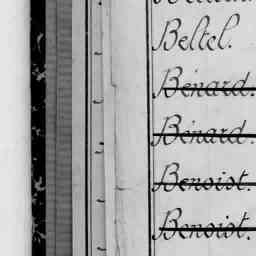 Beltel.
Benard.
Bénard.
Benoist.
Benoist.